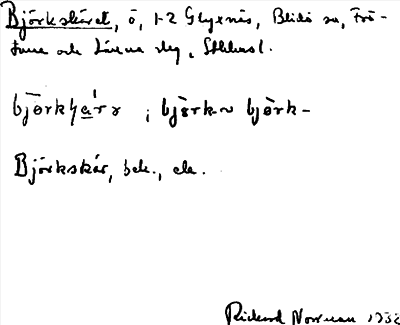 Björkskäret, ö, 1-2 Glyxnäs, Blidö sn, Frö-
tuna och Länna slg, Sthlms l.
björk ; björk ~ björk-
Björkskär, bek., ek.
Rickard Norrman 1932